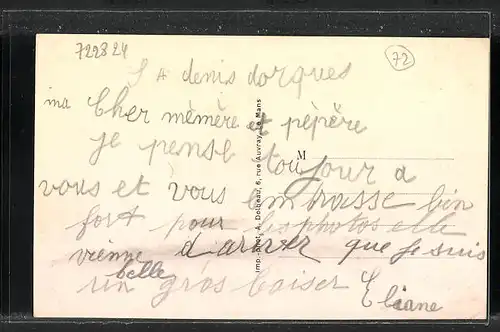 722824
72
S A denis dorques
ma Cher mèmère et pèpère
je pense toujour a
vous et vous embrasse bin
fort pour les photos elle
vienne d'arivez que je suis
belle
un gros baiser Eliane
M
Imp.-Phot. A. Dolbeau, 6, rue Auvray, Le Mans